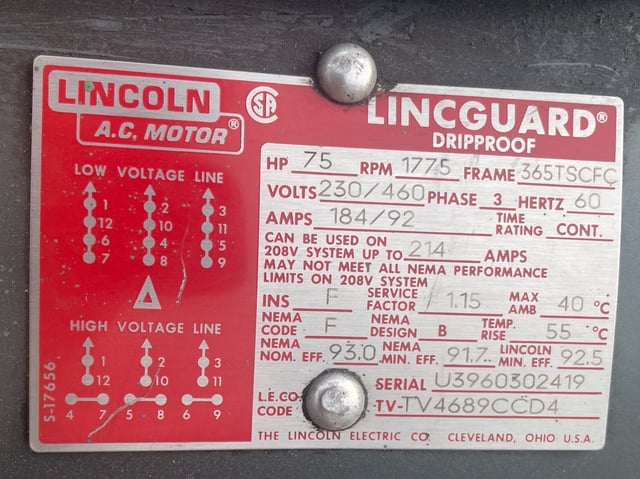 LINCOLN®
A.C. MOTOR
SA
LINCGUARD®
DRIPPROOF
LOW VOLTAGE LINE
1 2 3
12 10 11
6 4 5
7 8 9
Δ
HIGH VOLTAGE LINE
1 2 3
12 10 11
4 7 5 8 6 9
S-17656
HP 75 RPM 1775 FRAME 365TSCFC
VOLTS 230/460 PHASE 3 HERTZ 60
AMPS 184/92 TIME RATING CONT.
CAN BE USED ON
208V SYSTEM UP TO 214 AMPS
MAY NOT MEET ALL NEMA PERFORMANCE
LIMITS ON 208V SYSTEM
INS F SERVICE FACTOR 1.15 MAX AMB 40 °C
NEMA CODE F NEMA DESIGN B TEMP. RISE 55 °C
NEMA NOM. EFF. 93.0 NEMA MIN. EFF. 91.7 LINCOLN MIN. EFF. 92.5
SERIAL U3960302419
L.E.CO. CODE TV-TV4689CCD4
THE LINCOLN ELECTRIC CO. CLEVELAND, OHIO U.S.A.